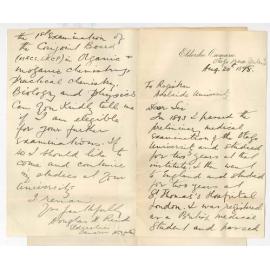 Aug. 20th 1898.
To Registrar
Adelaide University
Dear Sir
In 1893 I passed the
preliminary medical
Examination of the Otago
University and studied
for two years at that
institution. I then went
to England and studied
for two years at
St Thomas's Hospital
London. I was registered
as a British medical
Student and passed
the 1st Examination of
the Conjoint Board
in Organic &
inorganic chemistry,
Practical chemistry,
Biology and physics.
Can you kindly tell me
if I am eligible
for your further
Examinations. If
so I should like to
come and continue
my studies at your
University
I remain
Yours faithfully
Douglas